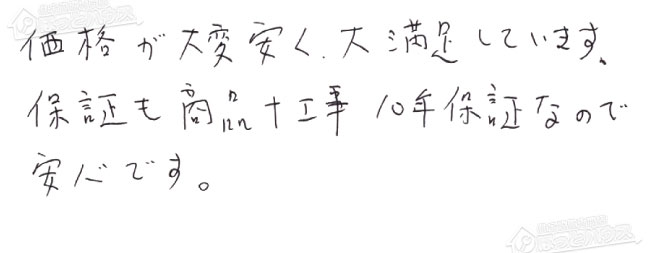 価格が大変安く、大満足しています、
保証も商品＋工事 10年保証なので
安心です。